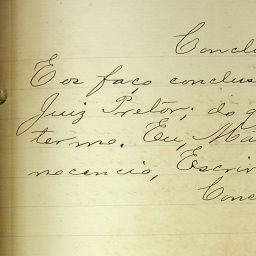 Conclu
E os faço conclus
Juiz Pretor; do q
termo. Eu, Ma
nocencio, Escriv
Conc